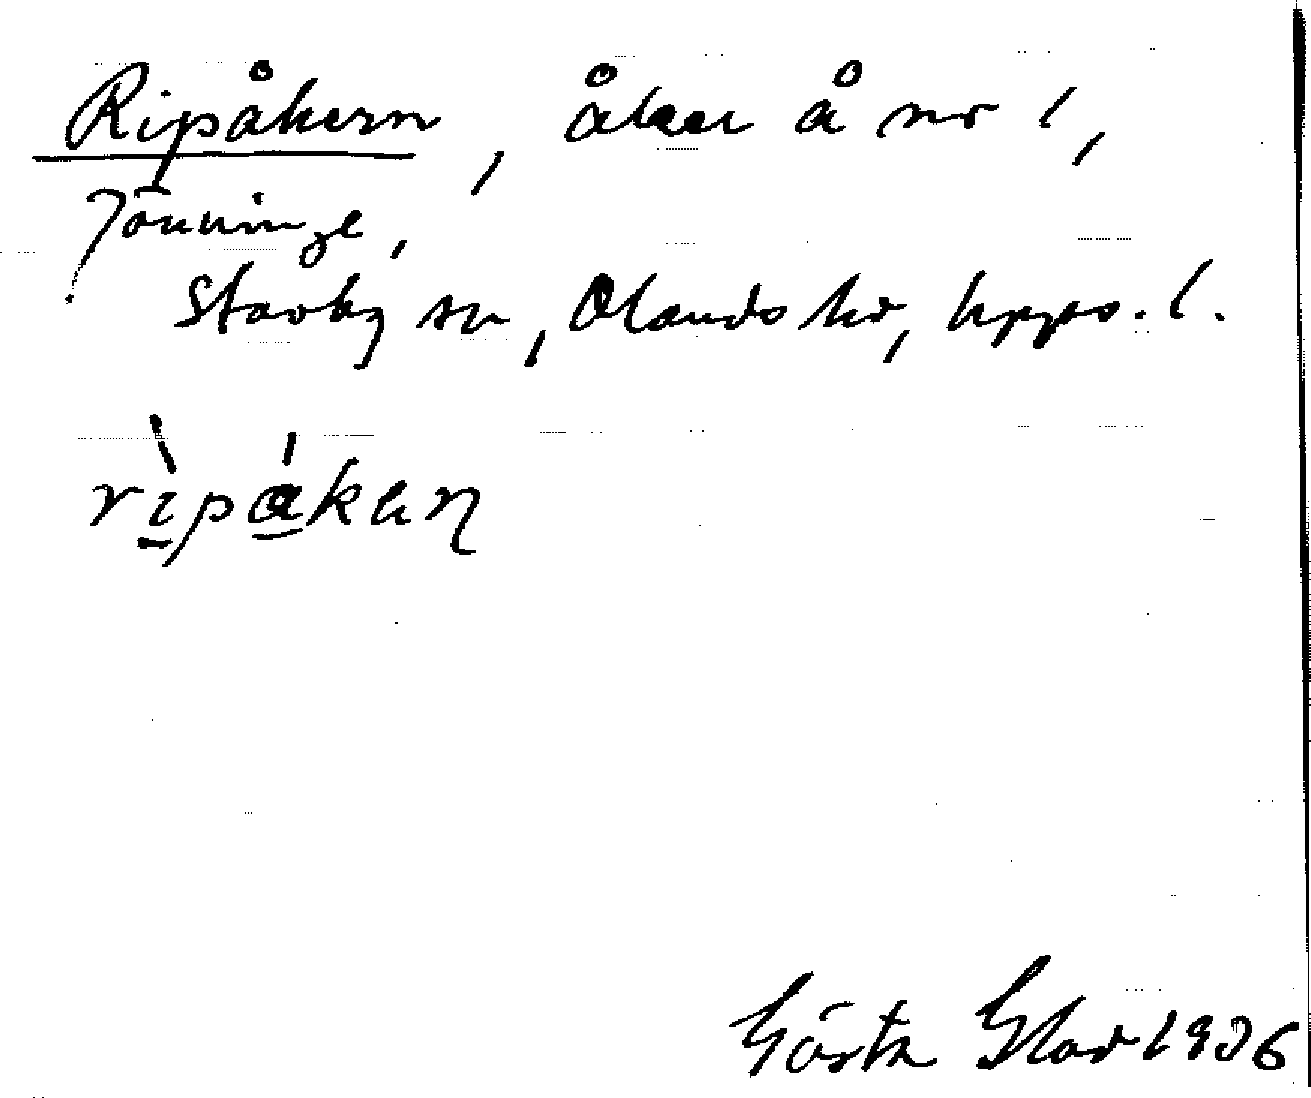 Ripåkern, åker å nr 1,
Jönninge,
Stavby sn, Olands hd, Upps. l.
ripåkaɳ
Gösta 1936